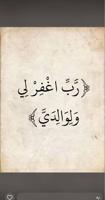 ﴿رَبِّ اغْفِرْ لِي
وَلِوَالِدَيَّ﴾